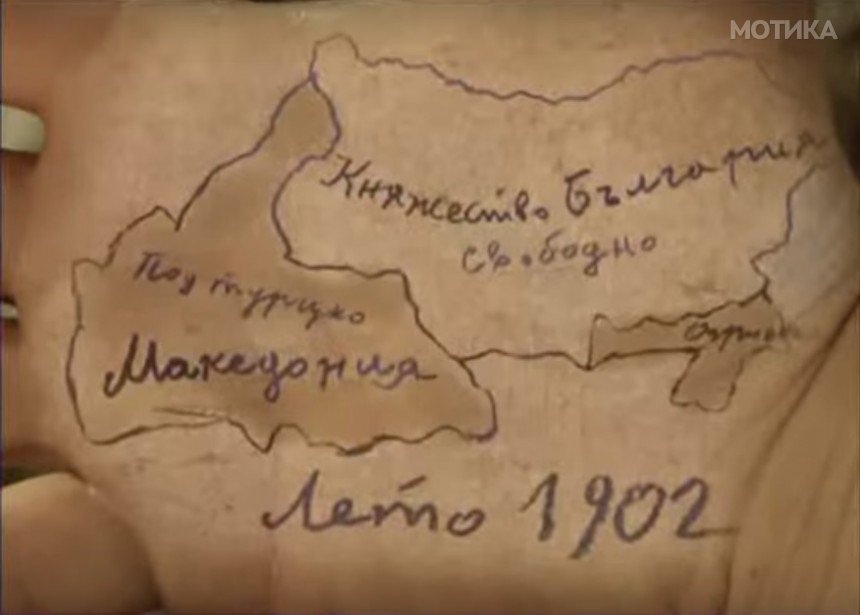 МОТИКА
Княжество България
свободно
Под турцко
Македония
Лето 1902